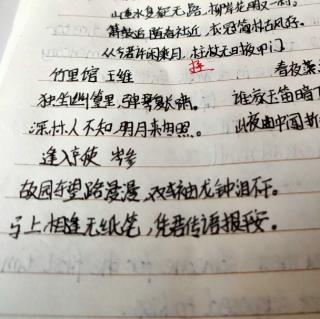 山重水复疑无路,柳暗花明又一村。
箫鼓追随春社近,衣冠简朴古风存。
从今若许闲乘月,拄杖无时夜叩门
拄
竹里馆 王维 春夜
独坐幽篁里,弹琴复长啸。 谁家玉笛暗
深林人不知,明月来相照。 此夜曲中
逢入京使 岑参
故园东望路漫漫,双袖龙钟泪不干。
马上相逢无纸笔,凭君传语报平安。